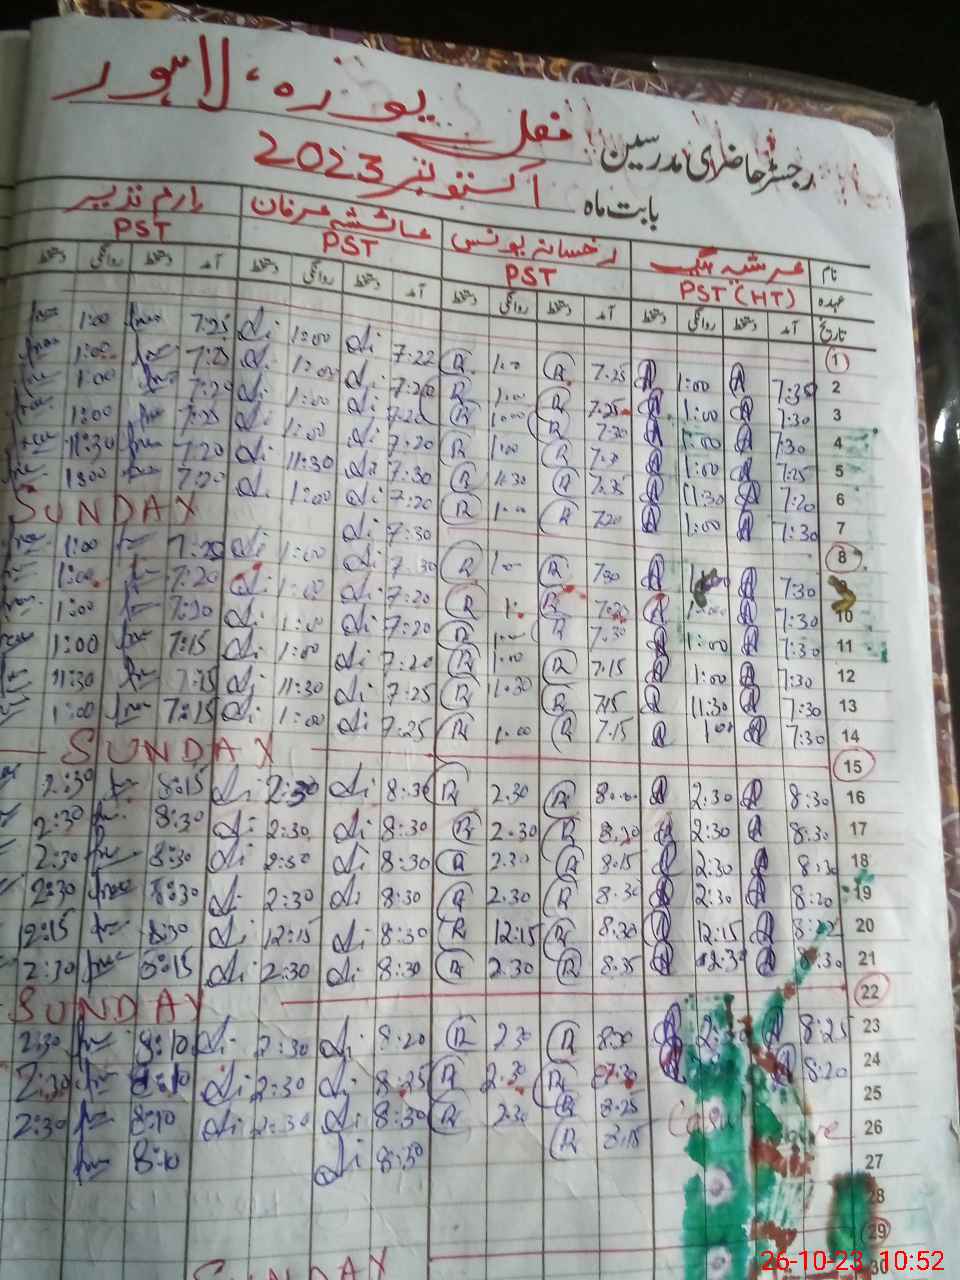 رجسٹر حاضری مدرسین مغل پورہ، لاہور
بابت ماہ اکتوبر 2023
نام عرشیہ بیگ رخسانہ یونس عائشہ عرفان ارم نذیر
عہدہ PST (HT) PST PST PST
تاریخ آمد دستخط روانگی دستخط آمد دستخط روانگی دستخط آمد دستخط روانگی دستخط آمد دستخط روانگی دستخط
1
2 7:35 1:00 7:25 1:00 7:22 1:00 7:25 1:00
3 7:30 1:00 7:25 1:00 7:20 1:00 7:25 1:00
4 7:30 1:00 7:30 1:00 7:20 1:00 7:20 1:00
5 7:25 1:00 1:00 7:20 1:00 7:25 1:00
6 7:20 11:30 7:25 11:30 7:30 11:30 7:20 11:30
7 7:30 1:00 7:20 1:00 7:20 1:00 7:20 1:00
8 SUNDAY
9 7:30 1:00 7:30 1:00 7:30 1:00 7:20 1:00
10 7:30 1:00 7:20 7:20 1:00 7:20 1:00
11 7:30 1:00 7:30 1:00 7:20 1:00 1:00
12 7:30 1:00 7:15 1:00 7:20 1:00 7:15 1:00
13 7:30 11:30 7:15 11:30 7:25 11:30 7:15 11:30
14 7:30 1:00 7:15 1:00 7:25 1:00 7:15 1:00
15 SUNDAY
16 8:30 2:30 2:30 8:30 2:30 8:15 2:30
17 8:30 2:30 8:30 2:30 8:30 2:30 8:30 2:30
18 8:30 2:30 8:15 2:30 8:30 2:30 8:30 2:30
19 8:20 2:30 8:30 2:30 8:30 2:30 8:30 2:30
20 12:15 8:30 12:15 8:30 12:15 8:30 12:15
21 8:30 2:30 8:35 2:30 8:30 2:30 8:15 2:30
22 SUNDAY
23 8:25 8:30 2:30 8:20 2:30 8:10 2:30
24 8:20 8:30 2:30 8:25 2:30 8:10 2:30
25 8:25 2:30 8:30 2:30 8:10 2:30
26 8:15 8:30 8:10
27
28
29 SUNDAY
30
26-10-23 10:52